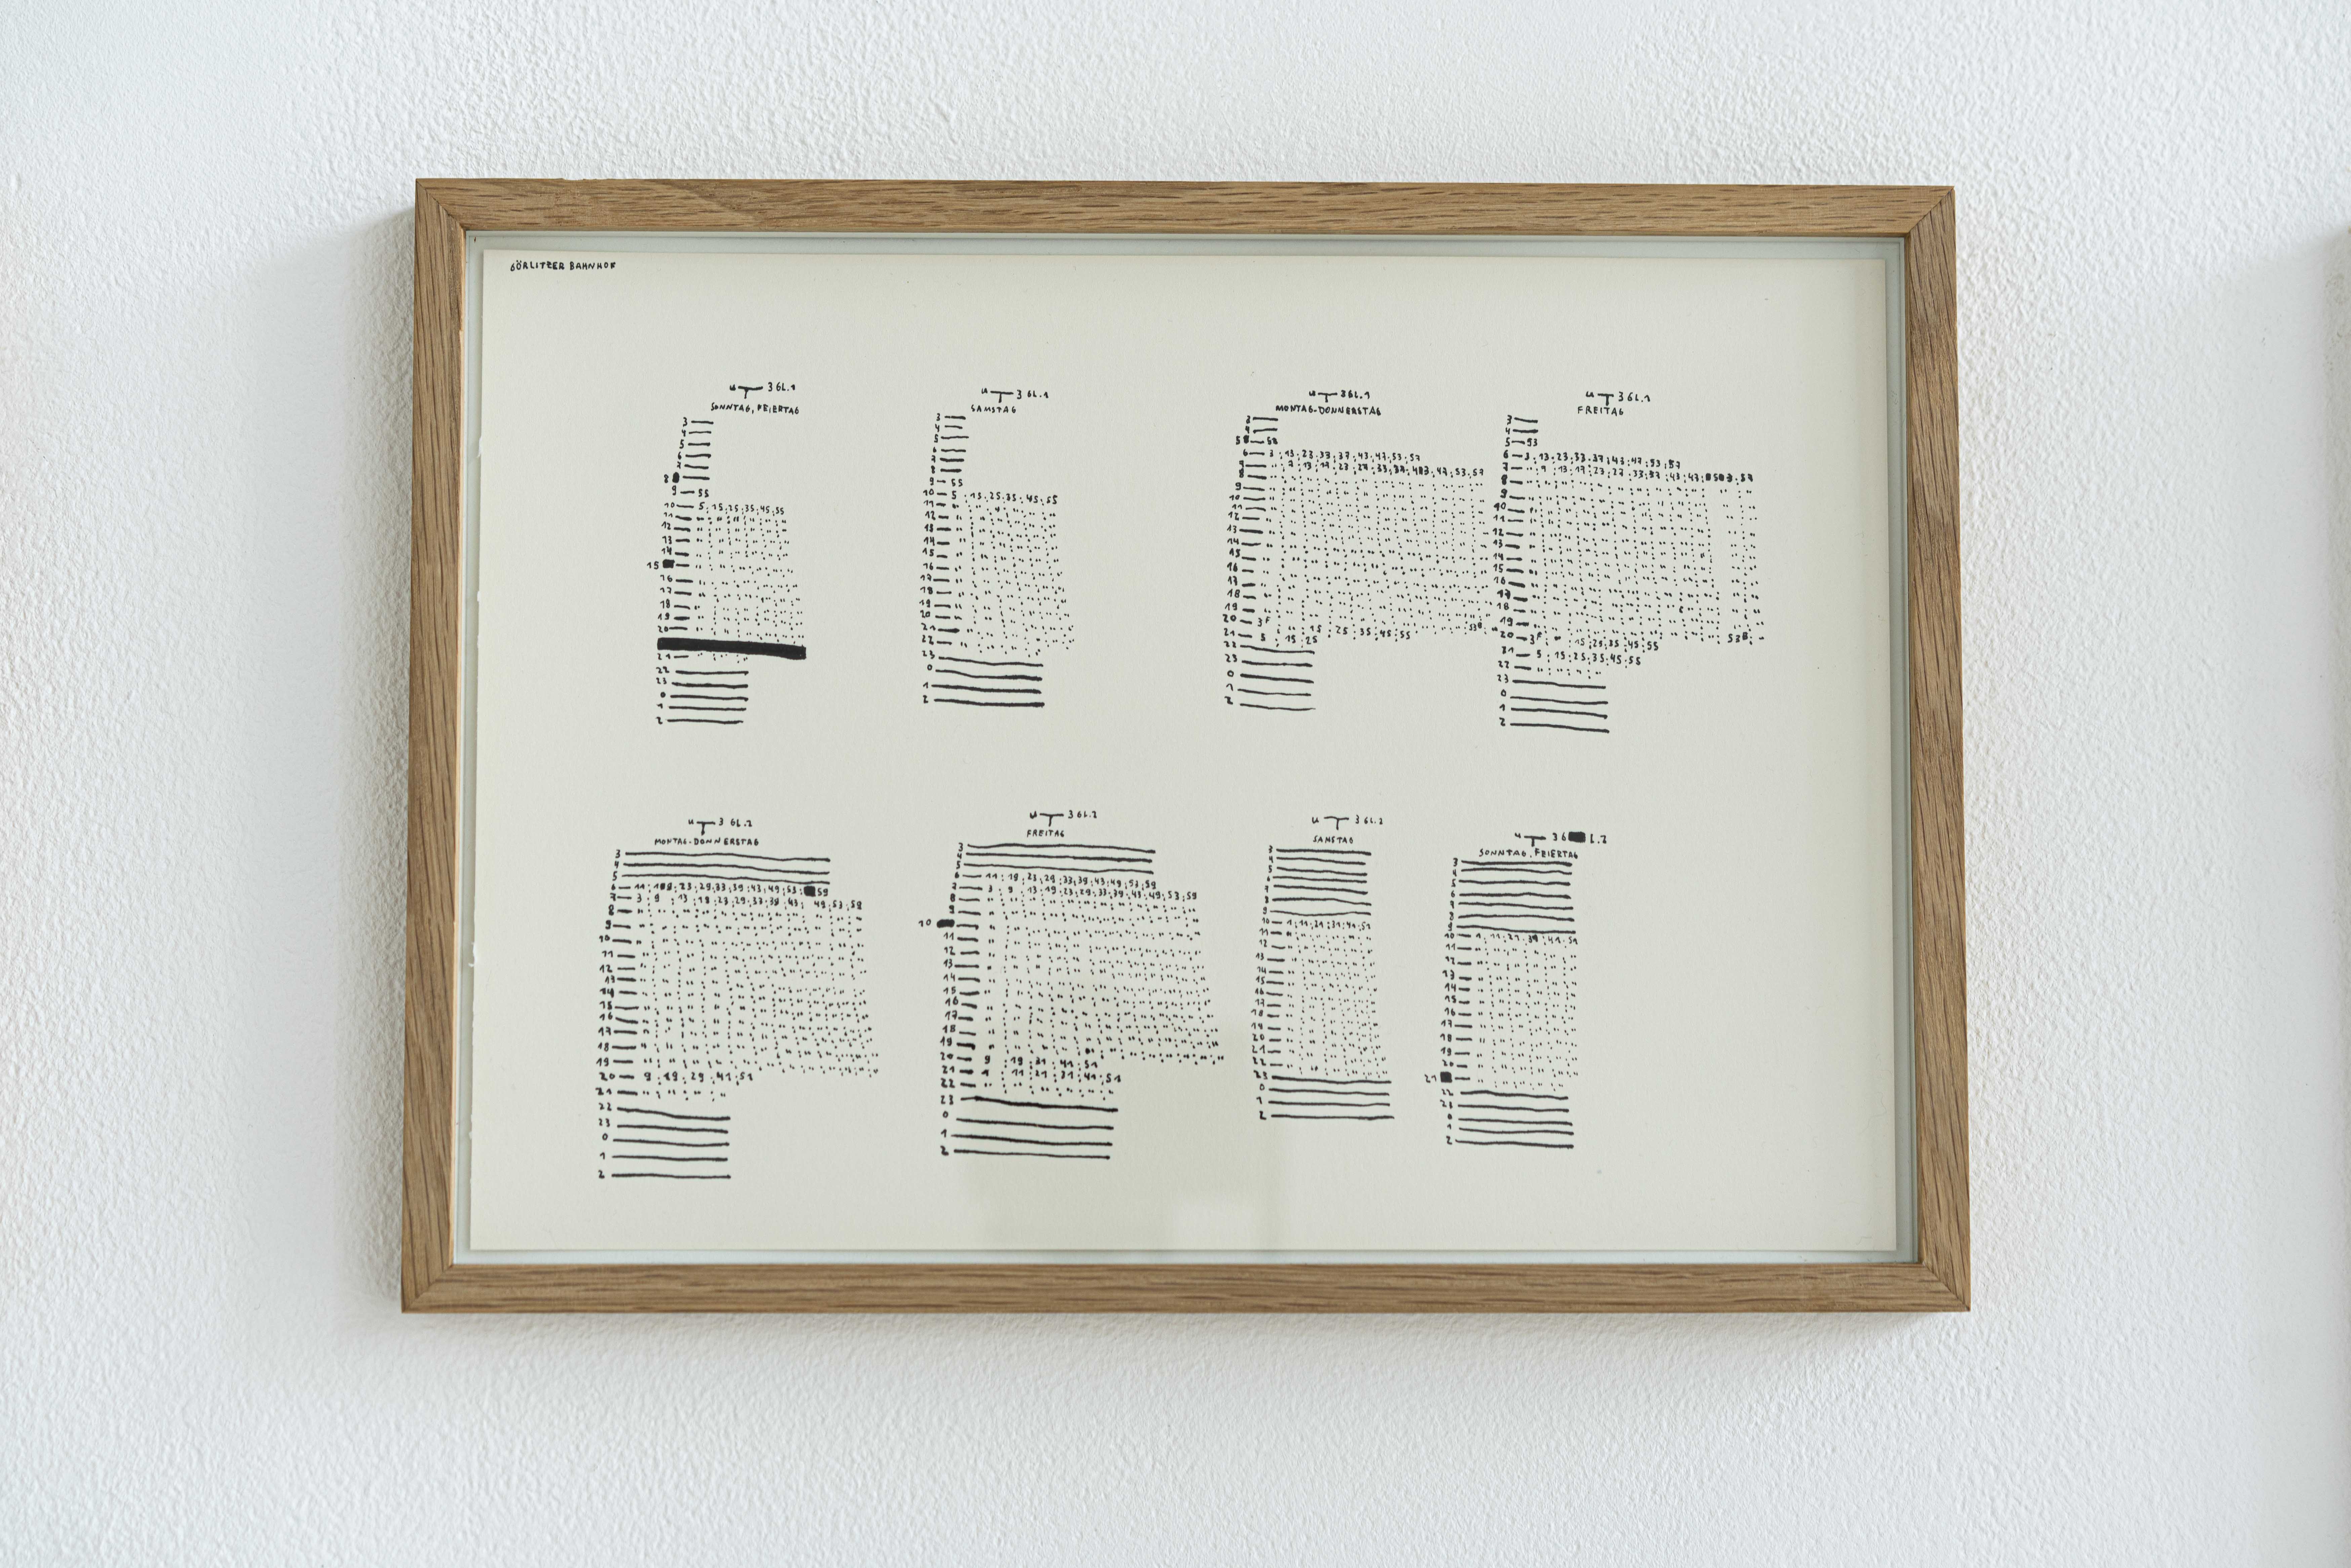 GÖRLITZER BAHNHOF
U 3 GL.1
SONNTAG, FEIERTAG
3
4
5
6
7
8
9 55
10 5 : 15 : 25 : 35 : 45 : 55
11 "
12 "
13 "
14 "
15 "
16 "
17 "
18 "
19 "
20 "
21
22
23
0
1
2
U 3 GL.1
SAMSTAG
3
4
5
6
7
8
9 55
10 5 : 15 : 25 : 35 : 45 : 55
11 "
12 "
13 "
14 "
15 "
16 "
17 "
18 "
19 "
20 "
21 "
22 "
23
0
1
2
U 3 GL.1
MONTAG-DONNERSTAG
3
4
5 53
6 3 : 13 : 23 : 33 : 37 : 43 : 47 : 53 : 57
8
9
10
11
12
13
14
15
16
17
18
19
20 3F 15 : 25 : 35 : 45 : 55 53B
21 5 : 15 : 25
22
23
0
1
2
U 3 GL.1
FREITAG
3
4
5 53
6 3 : 13 : 23 : 33 : 37 : 43 : 47 : 53 : 57
8
9
10
11
12
13
14
15
16
17
18
19
20 3F 15 : 25 : 35 : 45 : 55 53B
21 5 : 15 : 25 : 35 : 45 : 55
22
23
0
1
2
U 3 GL.2
MONTAG-DONNERSTAG
3
4
5
7 3 : 9 : 13 : 19 : 23 : 29 : 33 : 39 : 43 : 49 : 53 : 59
8
9
10
11
12
13
14
15
16
17
18
19
20 9 : 19 : 29 : 41 : 51
21
22
23
0
1
2
U 3 GL.2
FREITAG
3
4
5
6 11 : 19 : 23 : 29 : 33 : 39 : 43 : 49 : 53 : 59
7 3 : 9 : 13 : 19 : 23 : 29 : 33 : 39 : 43 : 49 : 53 : 59
8
9
10
11
12
13
14
15
16
17
18
19
20 9 : 19 : 31 : 41 : 51
21 1 : 11 : 21 : 31 : 41 : 51
22
23
0
1
2
U 3 GL.2
SAMSTAG
3
4
5
6
7
8
9
10 1 : 11 : 21 : 31 : 41 : 51
11
12
13
14
15
16
17
18
19
20
21
22
23
0
1
2
U 3 G L.2
SONNTAG, FEIERTAG
3
4
5
6
7
8
9
10 1 : 11 : 21 : 31 : 41 : 51
11
12
13
14
15
16
17
18
19
20
21
22
23
0
1
2